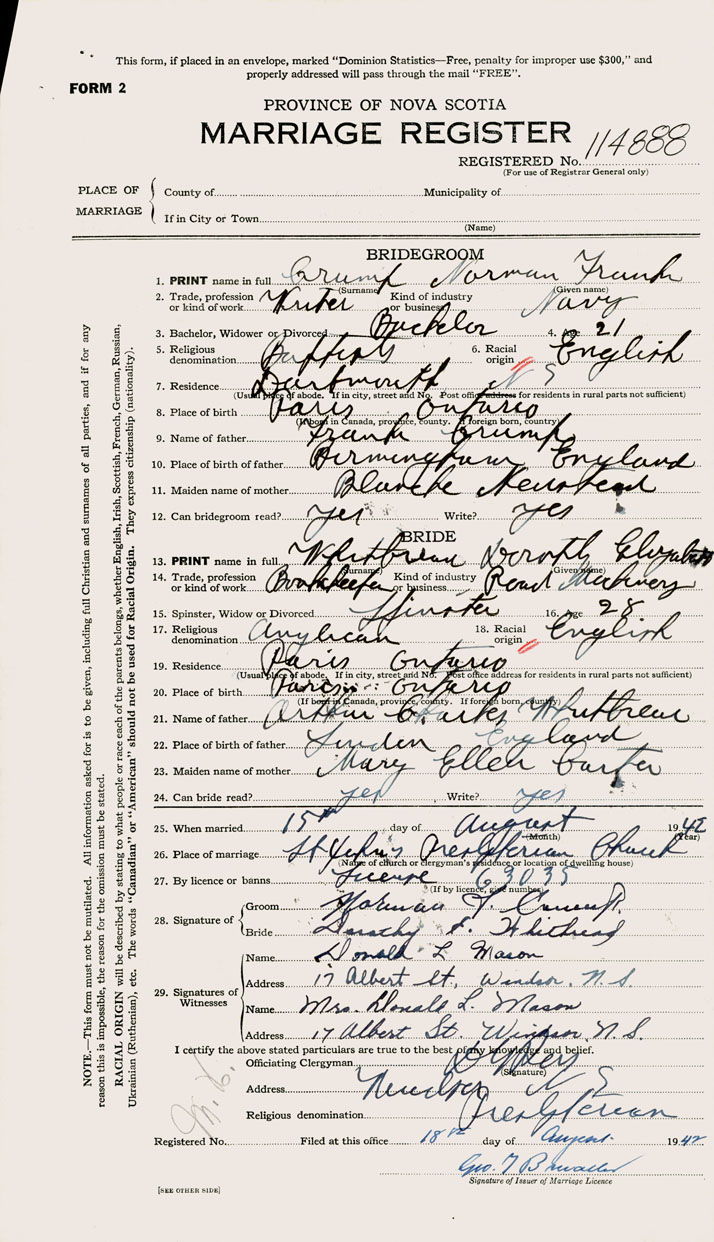 This form, if placed in an envelope, marked "Dominion Statistics—Free, penalty for improper use $300," and
properly addressed will pass through the mail "FREE".
FORM 2
PROVINCE OF NOVA SCOTIA
MARRIAGE REGISTER
REGISTERED No. 114888
(For use of Registrar General only)
PLACE OF MARRIAGE
County of Municipality of
If in City or Town
(Name)
BRIDEGROOM
1. PRINT name in full Crump Norman Frank
(Surname) (Given name)
2. Trade, profession or kind of work Writer Kind of industry or business Navy
3. Bachelor, Widower or Divorced Bachelor 4. Age 21
5. Religious denomination Baptist 6. Racial origin English
7. Residence Dartmouth N S
(Usual place of abode. If in city, street and No. Post office address for residents in rural parts not sufficient)
8. Place of birth Paris Ontario
(If born in Canada, province, county. If foreign born, country)
9. Name of father Frank Crump
10. Place of birth of father Birmingham England
11. Maiden name of mother Blanche Newstead
12. Can bridegroom read? yes Write? yes
BRIDE
13. PRINT name in full Whitbread Dorothy Elizabeth
(Surname) (Given name)
14. Trade, profession or kind of work Bookkeeper Kind of industry or business Road Machinery
15. Spinster, Widow or Divorced Spinster 16. Age 28
17. Religious denomination Anglican 18. Racial origin English
19. Residence Paris Ontario
(Usual place of abode. If in city, street and No. Post office address for residents in rural parts not sufficient)
20. Place of birth Paris Ontario
(If born in Canada, province, county. If foreign born, country)
21. Name of father Arthur Charles Whitbread
22. Place of birth of father London England
23. Maiden name of mother Mary Ellen Carter
24. Can bride read? yes Write? yes
25. When married 15th day of August 1942
(Month) (Year)
26. Place of marriage St John's Presbyterian Church
(Name of church or clergyman's residence or location of dwelling house)
27. By licence or banns License 63035
(If by licence, give number)
28. Signature of
Groom Norman F. Crump.
Bride Dorothy E. Whitbread
29. Signatures of Witnesses
Name Donald L Mason
Address 17 Albert St., Windsor, N.S.
Name Mrs. Donald L. Mason
Address 17 Albert St. Windsor, N.S.
I certify the above stated particulars are true to the best of my knowledge and belief.
Officiating Clergyman
(Signature)
Address Windsor N S
Religious denomination Presbyterian
Registered No. Filed at this office 18th day of August 1942
Geo.
Signature of Issuer of Marriage Licence
[SEE OTHER SIDE]
NOTE.—This form must not be mutilated. All information asked for is to be given, including full Christian and surnames of all parties, and if for any
reason this is impossible, the reason for the omission must be stated.
RACIAL ORIGIN will be described by stating to what people or race each of the parents belongs, whether English, Irish, Scottish, French, German, Russian,
Ukrainian (Ruthenian), etc. The words "Canadian" or "American" should not be used for Racial Origin. They express citizenship (nationality).